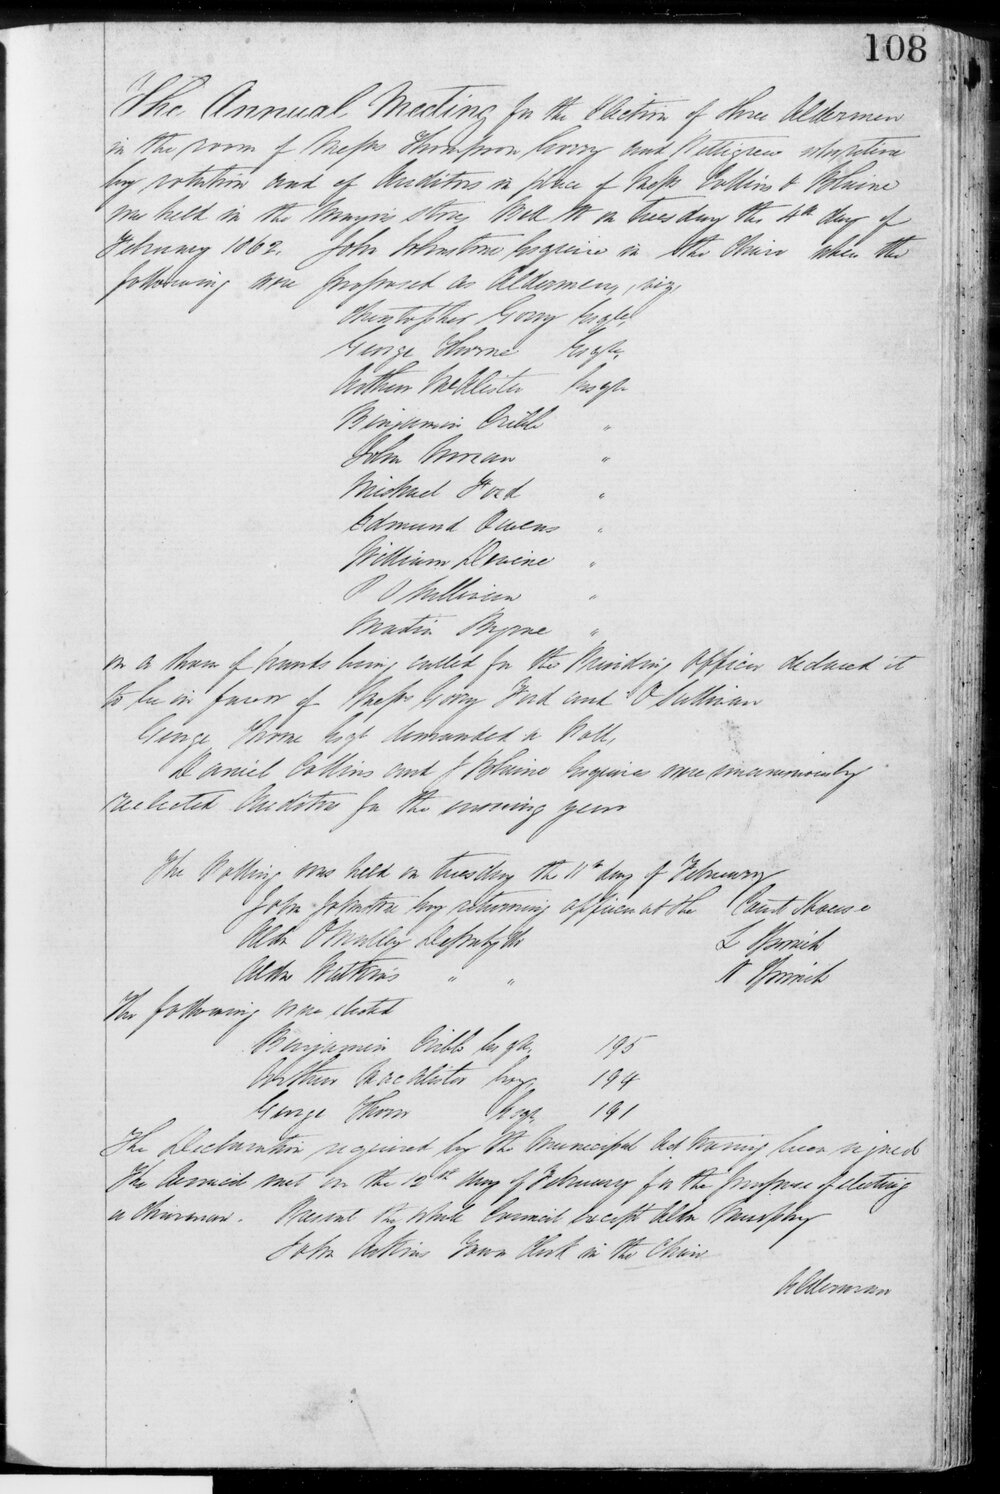 108
The Annual Meeting for the Election of three Aldermen
in the room of Messrs Thompson Gorry and Pettigrew retiring
by rotation and of Auditors in place of Messrs Collins & Blaine
was held in the Mayor's on Tuesday the 4th day of
February 1862. John Johnstone Esquire in the Chair when the
following were proposed as Aldermen, viz,
Christopher Gorry Esqre,
George Thorne Esqre,
Arthur McAlister Esqre
Benjamin Cribb "
John Moran "
Michael Ford "
Edmund Owens "
William Devine "
P O Sullivan "
Martin Byrne "
on a show of hands being called for the Presiding Officer declared it
to be in favor of Messrs Gorry Ford and O Sullivan
George Thorne Esqr demanded a Poll,
Daniel Collins and J Blaine Esquires were unanimously
reelected Auditors for the ensuing year
The Polling was held on Tuesday the 11th day of February
John Johnstone Esq returning officer at the Court House
Aldn O'Malley Deputy do L Ipswich
Aldn Watkins " " N Ipswich
The following were elected
Benjamin Cribb Esqre, 195
Arthur Macalister Esq, 194
George Thorn Esqr, 191
The Declaration required by the Municipal Act having been signed
The Council met on the 12th day of February for the purpose of electing
a Chairman. Present the whole Council except Aldn Murphy
John Town Clerk in the Chair
Alderman